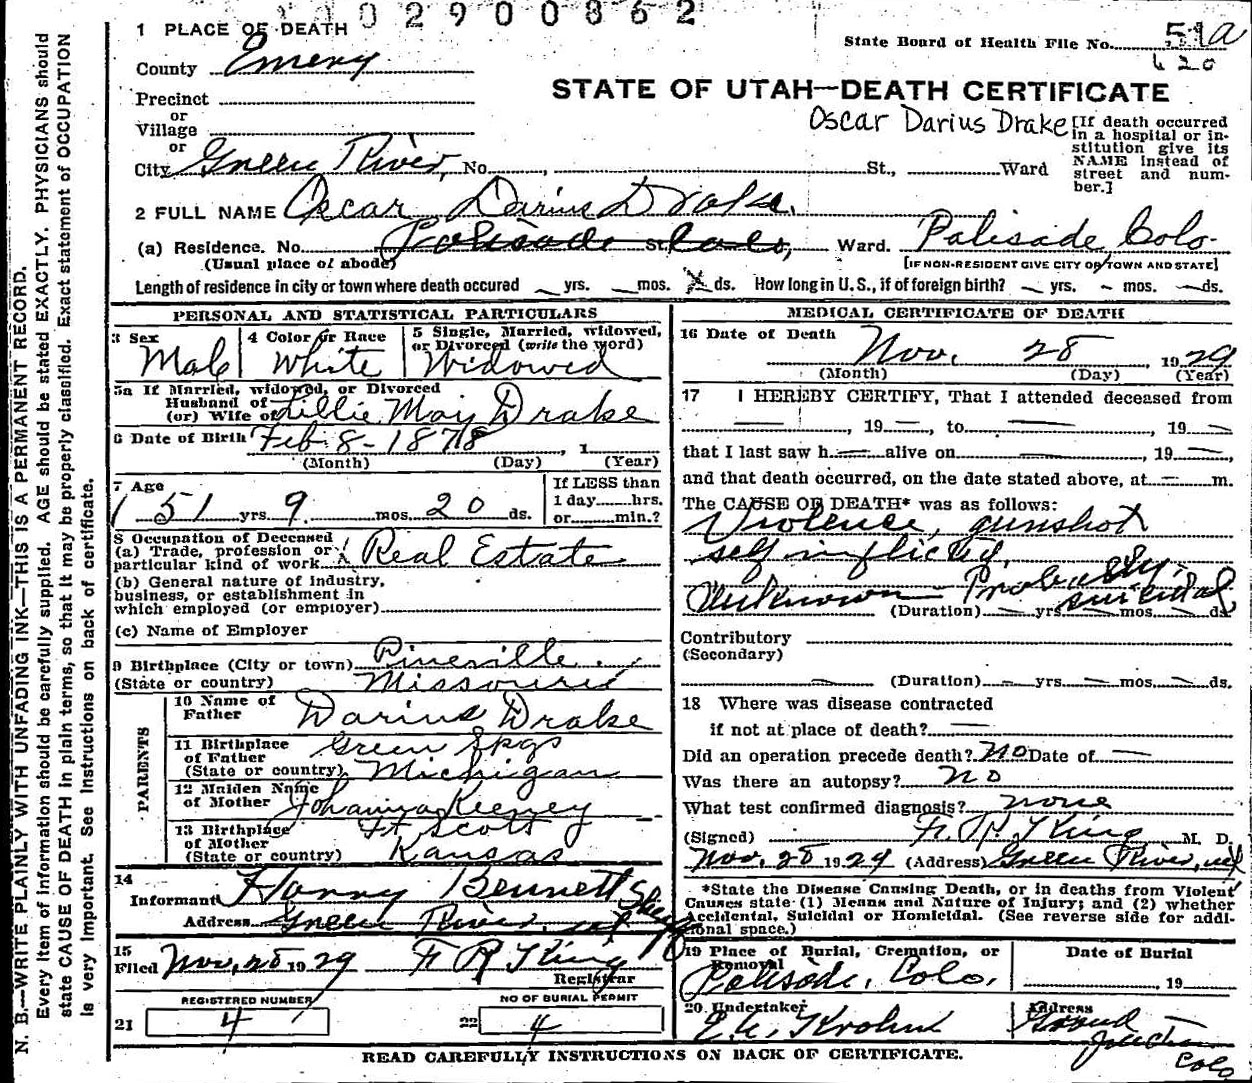 02900862
1 PLACE OF DEATH
State Board of Health File No. 51a
620
County Emery
STATE OF UTAH—DEATH CERTIFICATE
Precinct
or
Village
or
Oscar Darius Drake
[If death occurred in a hospital or in-
stitution give its NAME instead of street and num-
ber.]
City Green River, No. , St., Ward
2 FULL NAME Oscar Darius Drake.
(a) Residence. No. Palisade St. Colo, Ward. Palisade, Colo.
(Usual place of abode) [IF NON-RESIDENT GIVE CITY OR TOWN AND STATE]
Length of residence in city or town where death occured yrs. mos. ds. How long in U. S., if of foreign birth? yrs. mos. ds.
PERSONAL AND STATISTICAL PARTICULARS
3 Sex
Male
4 Color or Race
White
5 Single, Married, widowed, or Divorced (write the word)
Widowed
5a If Married, widowed, or Divorced
Husband of
(or) Wife of Lillie May Drake
6 Date of Birth Feb. 8-1878, 1
(Month) (Day) (Year)
7 Age
51 yrs. 9 mos. 20 ds.
If LESS than
1 day hrs.
or min.?
8 Occupation of Deceased
(a) Trade, profession or
particular kind of work Real Estate
(b) General nature of industry,
business, or establishment in
which employed (or employer)
(c) Name of Employer
9 Birthplace (City or town) Pineville,
(State or country) Missouri
PARENTS
10 Name of
Father Darius Drake
11 Birthplace
of Father Green Spgs
(State or country) Michigan
12 Maiden Name
of Mother Johanna Keeney
13 Birthplace
of Mother Ft. Scott
(State or country) Kansas
14
Informant Harry Bennett
Address Green River, ut
15
Filed Nov. 28 1929 F R King
Registrar
REGISTERED NUMBER
21 4
NO OF BURIAL PERMIT
22 4
MEDICAL CERTIFICATE OF DEATH
16 Date of Death Nov. 28 1929
(Month) (Day) (Year)
17 I HEREBY CERTIFY, That I attended deceased from
, 19 , to , 19
that I last saw h alive on , 19 ,
and that death occurred, on the date stated above, at m.
The CAUSE OF DEATH* was as follows:
Violence, gunshot
self inflicted,
Probably suicidal
Unknown (Duration) yrs. mos. ds.
Contributory
(Secondary)
(Duration) yrs. mos. ds.
18 Where was disease contracted
if not at place of death?
Did an operation precede death? No Date of
Was there an autopsy? no
What test confirmed diagnosis? none
(Signed) F. R. King M. D.
Nov. 28 1929 (Address) Green River, ut
*State the Disease Causing Death, or in deaths from Violent
Causes state (1) Means and Nature of Injury; and (2) whether
Accidental, Suicidal or Homicidal. (See reverse side for addi-
tional space.)
19 Place of Burial, Cremation, or
Removal
Palisade, Colo.
Date of Burial
, 19
20 Undertaker
Krohn
Address
Grand Junction Colo
READ CAREFULLY INSTRUCTIONS ON BACK OF CERTIFICATE.
N. B.—WRITE PLAINLY WITH UNFADING INK—THIS IS A PERMANENT RECORD.
Every item of information should be carefully supplied. AGE should be stated EXACTLY. PHYSICIANS should
state CAUSE OF DEATH in plain terms, so that it may be properly classified. Exact statement of OCCUPATION
is very important. See Instructions on back of certificate.